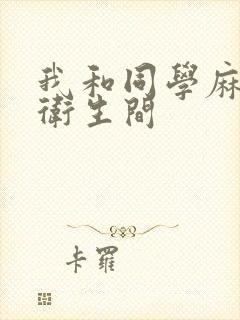 我和同學麻
衛生間
卡羅